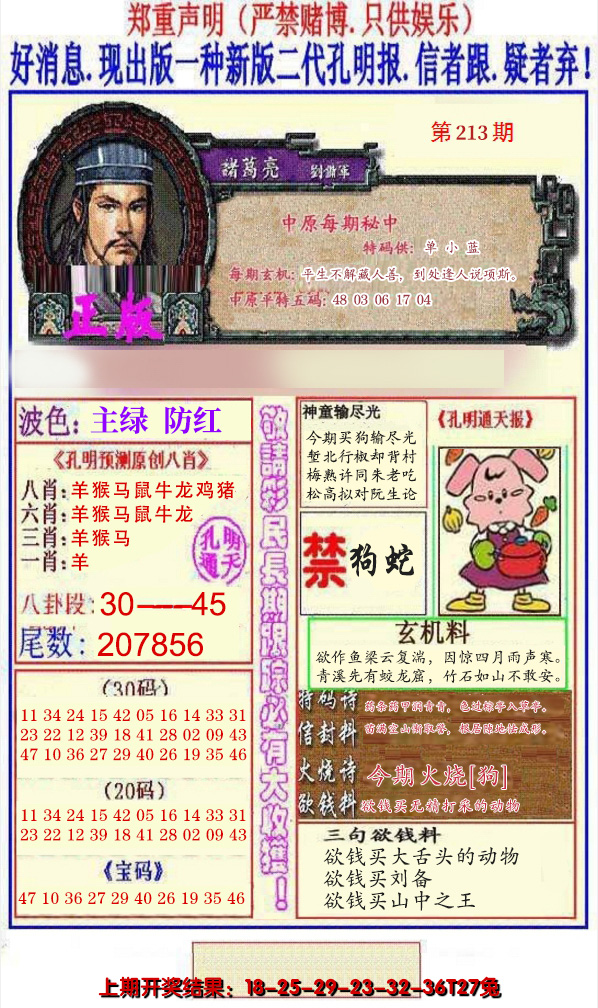 郑重声明（严禁赌博.只供娱乐）
好消息.现出版一种新版二代孔明报.信者跟.疑者弃！
第213期
諸葛亮 劉備軍
中原每期秘中
特码供：单小蓝
每期玄机：平生不解藏人善，到处逢人说项斯。
中原平特五码：48 03 06 17 04
正版
波色：主绿 防红
《孔明预测原创八肖》
八肖：羊猴马鼠牛龙鸡猪
六肖：羊猴马鼠牛龙
三肖：羊猴马
一肖：羊
孔明
通天
八卦段：30——45
尾数：207856
（30码）
11 34 24 15 42 05 16 14 33 31
23 22 12 39 18 41 28 02 09 43
47 10 36 27 29 40 26 19 35 46
（20码）
11 34 24 15 42 05 16 14 33 31
23 22 12 39 18 41 28 02 09 43
《宝码》
47 10 36 27 29 40 26 19 35 46
敬請彩民長期跟踪必有大收獲！
神童输尽光
今期买狗输尽光
堑北行椒却背村
梅熟许同朱老吃
松高拟对阮生论
《孔明通天报》
禁狗蛇
玄机料
欲作鱼梁云复湍，因惊四月雨声寒。
青溪先有蛟龙窟，竹石如山不敢安。
特码诗 药条药甲润青青，色过棕亭入草亭。
信封料 苗满空山惭取誉，根居隙地怯成形。
火烧诗 今期火烧[狗]
欲钱料 欲钱买无精打采的动物
三句欲钱料
欲钱买大舌头的动物
欲钱买刘备
欲钱买山中之王
上期开奖结果：18-25-29-23-32-36T27兔